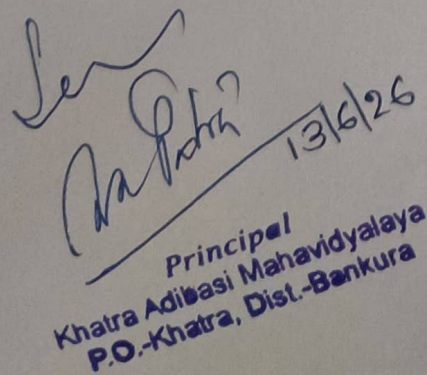 13/6/26
Principal
Khatra Adibasi Mahavidyalaya
P.O.-Khatra, Dist.-Bankura